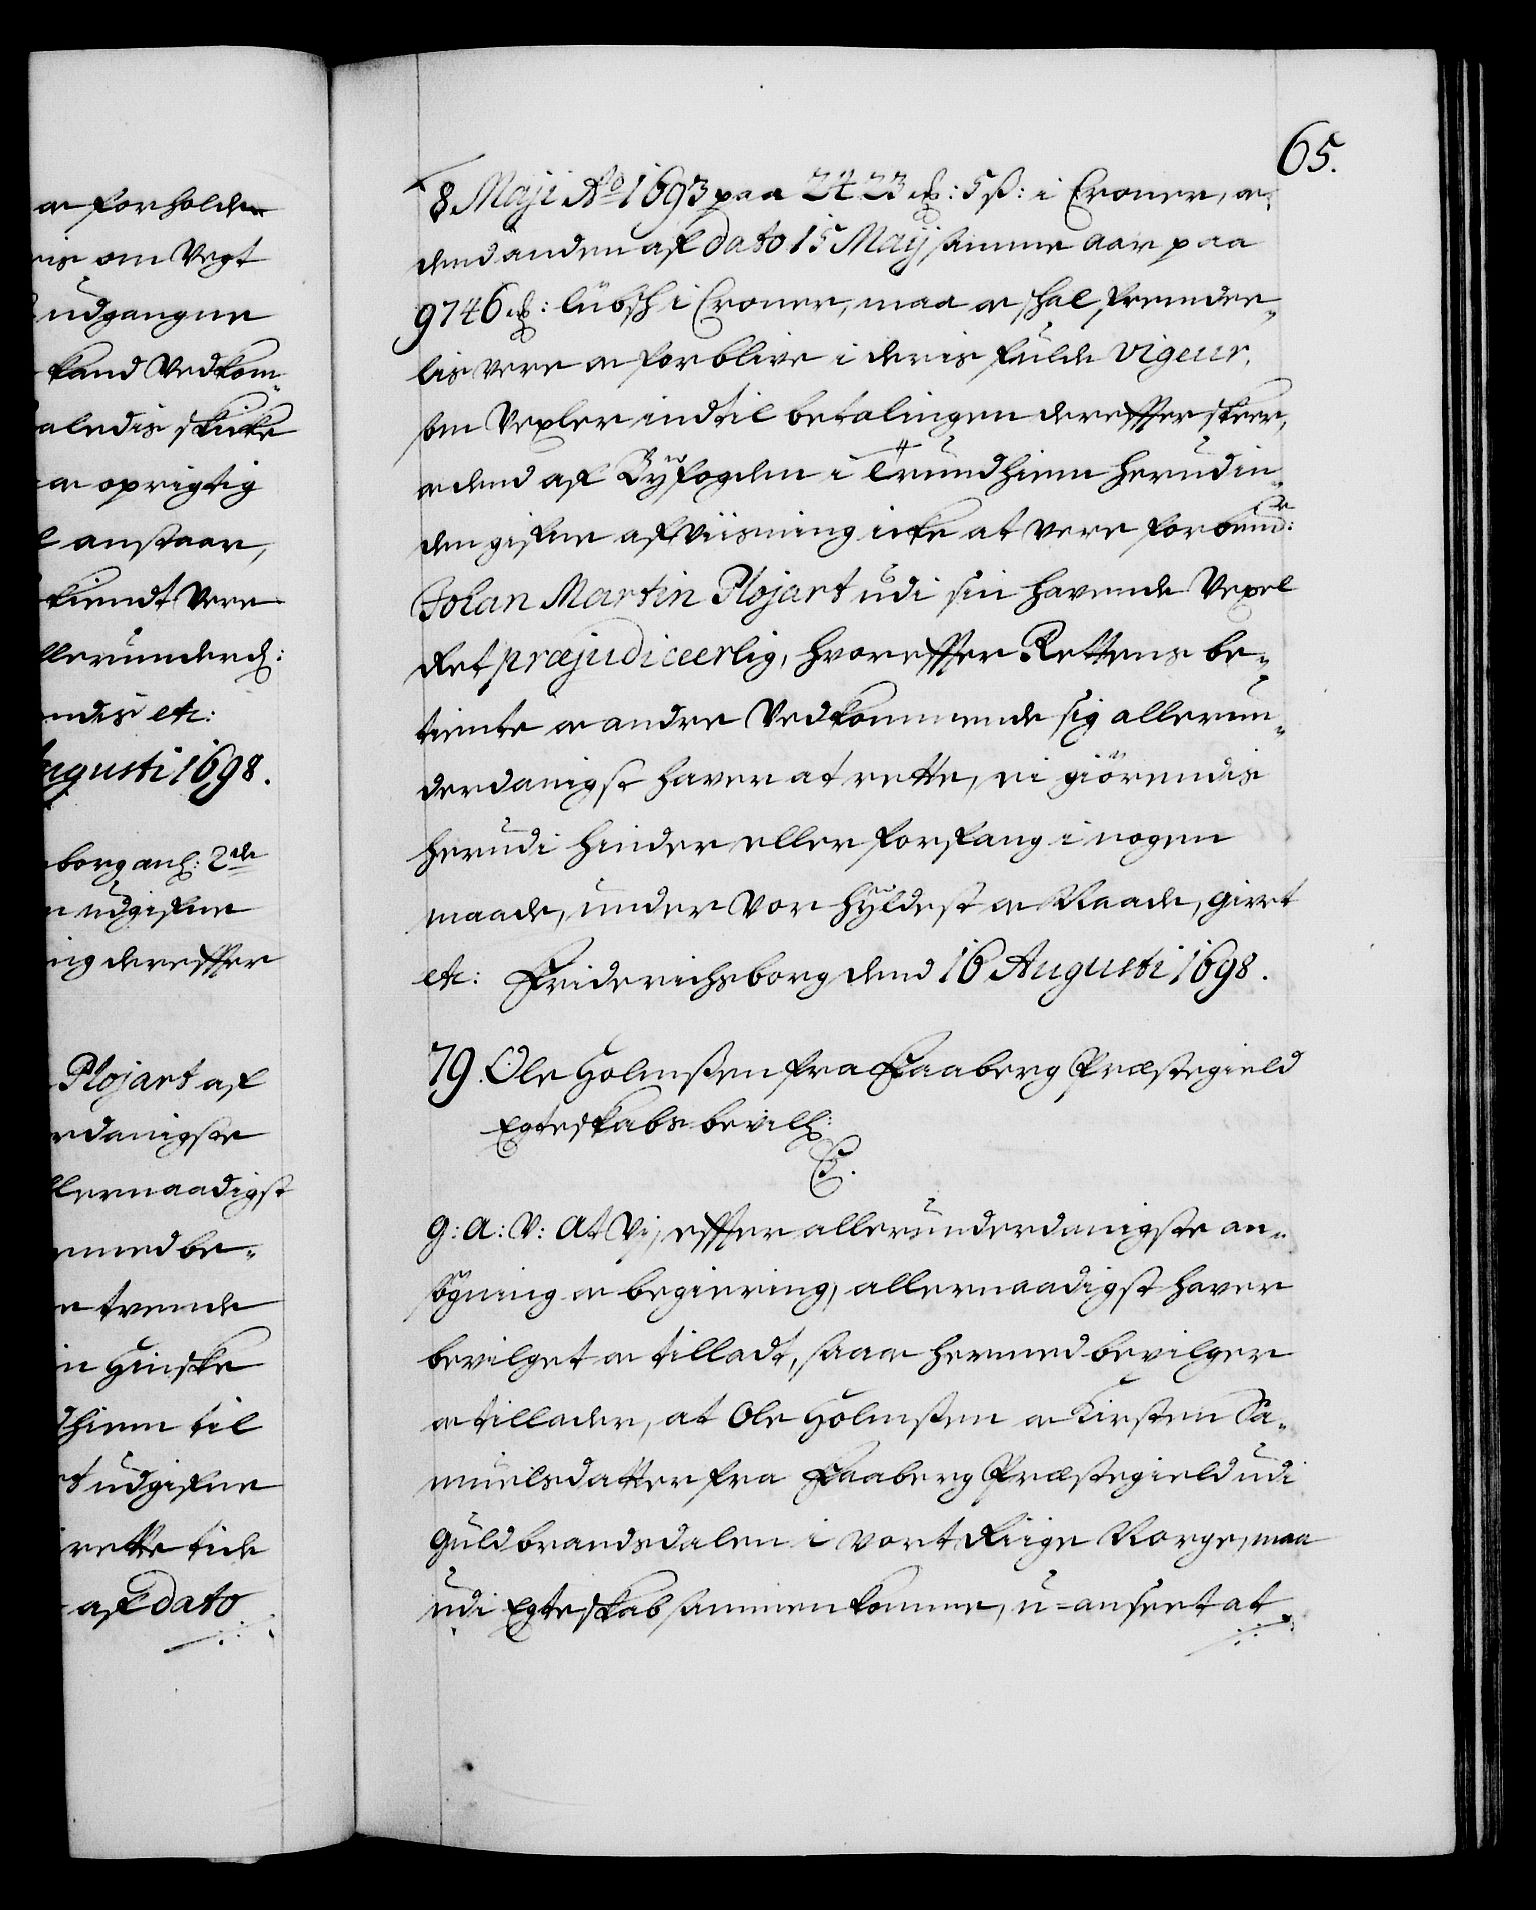 a forholde
ris om Vegt
udgangne
kand Vedkom-
aledis skicke
a oprigtig
anstaar,
kiendt Vere
llerunderd:
ndis etc:
Augusti 1698.
borg an: 2de
udgifne
ing derefter
Plojart af
rdanigste
llernaadigst
rmed be-
e tvende
in Hinske
dhiem til
t udgifne
rette tide
af dato
65.
8 Maji Ao 1693 paa 2423 : 5 ß: i Croner, a
dend anden af dato 15 Maij samme aar paa
9746 : lübsch i Croner, maa a skal fremde-
lis vere a forblive i deris fulde vigeur,
som Vexler indtil betalingen derefter skeer,
a dend af Byfogden i Trundhiem herudin-
den gifne afviisning icke at vere forbem:te
Johan Martin Plojart udi sin havende Vexel
Ret præjudiceerlig, hvorefter Rettens be-
tiente a andre Vedkommende sig allerun-
derdanigst haver at rette, ei giörendis
herudi hinder eller forfang i nogen
maade, under Vor hyldest a Naade, givet
etc: Friderichsborg dend 16 Augusti 1698.
79. Ole Holmssen fra Faaberg Præstegield
Egteskabs bevill:
C.
G: A: V: At Vj, efter allerunderdanigste an-
sögning a begiering, allernaadigst haver
bevilget a tilladt, saa a hermed bevilger
a tillader, at Ole Holmssen a Kirsten Sa-
muelsdatter fra Faaberg Præstegield udi
Guldbrandsdalen i vort Riige Norge, maa
udi Egteskab sammenkomme, u-anseet at